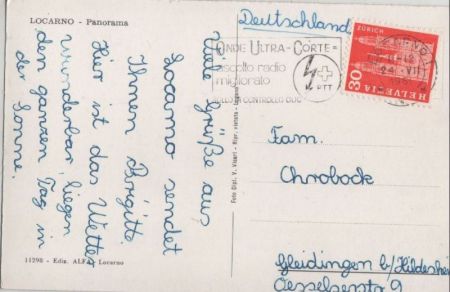 LOCARNO - Panorama
Viele Grüße aus
Locarno sendet
Ihnen Brigitte.
Hier ist das Wetter
wunderbar, liegen
den ganzen Tag in
der Sonne.
11298 - Ediz. ALFA Locarno
Foto Dipl. V. Vicari - Ripr. vietata - Lugano
Deutschland
ONDE ULTRA-CORTE=
ascolto radio
migliorato
PTT
HELVETIA
30
ZÜRICH
Fam.
Chrobock
Gleidingen b/Hildeshei
Oesselsenstr 9